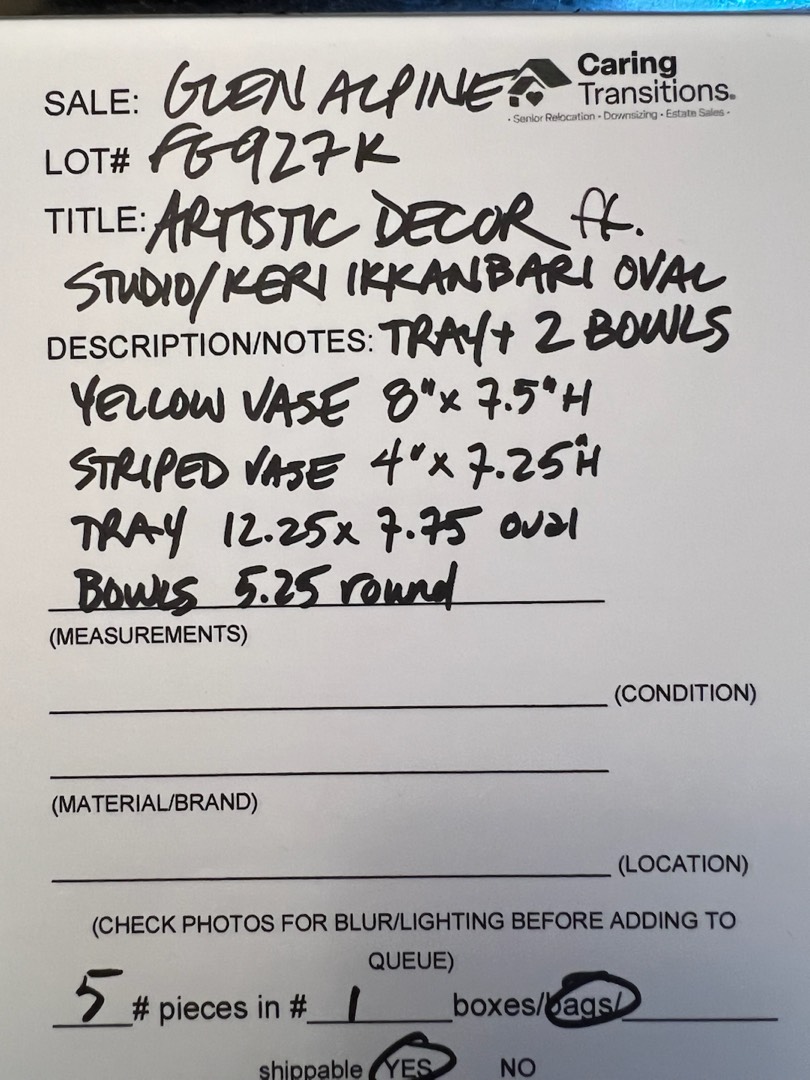 SALE: GLEN ALPINE
Caring
Transitions.
· Senior Relocation · Downsizing · Estate Sales ·
LOT# FG927K
TITLE: ARTISTIC DECOR ft.
STUDIO/KERI IKKANBARI OVAL
DESCRIPTION/NOTES: TRAY + 2 BOWLS
YELLOW VASE 8" x 7.5" H
STRIPED VASE 4" x 7.25" H
TRAY 12.25 x 7.75 oval
BOWLS 5.25 round
(MEASUREMENTS)
(CONDITION)
(MATERIAL/BRAND)
(LOCATION)
(CHECK PHOTOS FOR BLUR/LIGHTING BEFORE ADDING TO
QUEUE)
5 # pieces in # 1 boxes/bags/
shippable YES NO